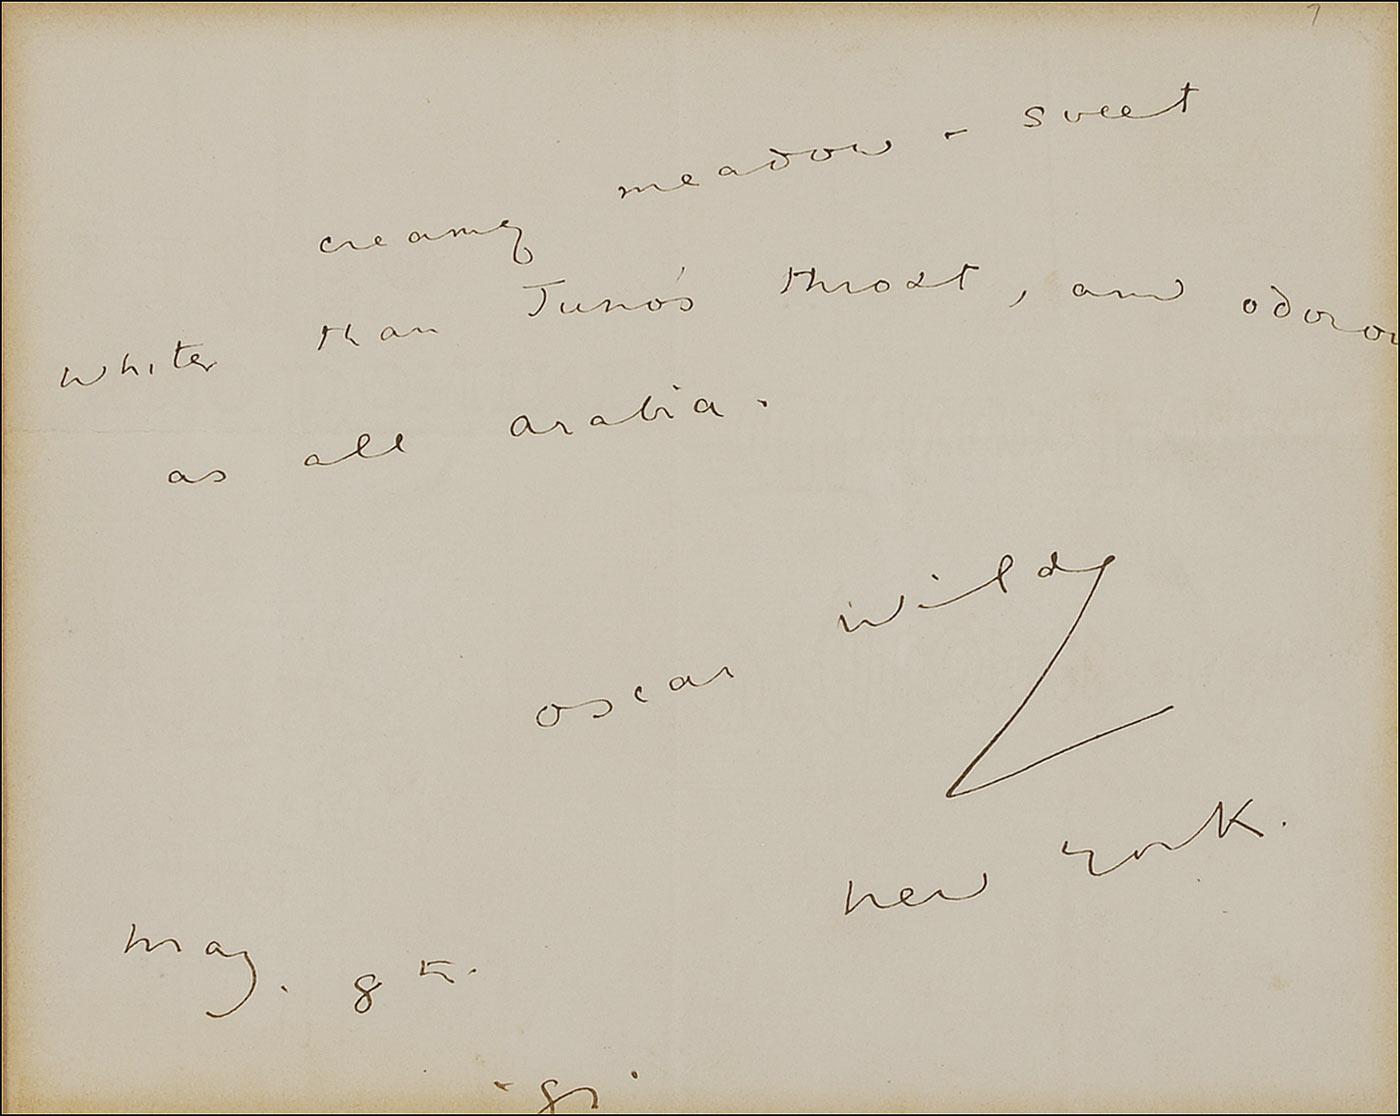 creamy meadow - sweet
whiter than Juno's throat, and odoro
as all arabia.
oscar Wilde
New York.
May. 8th.